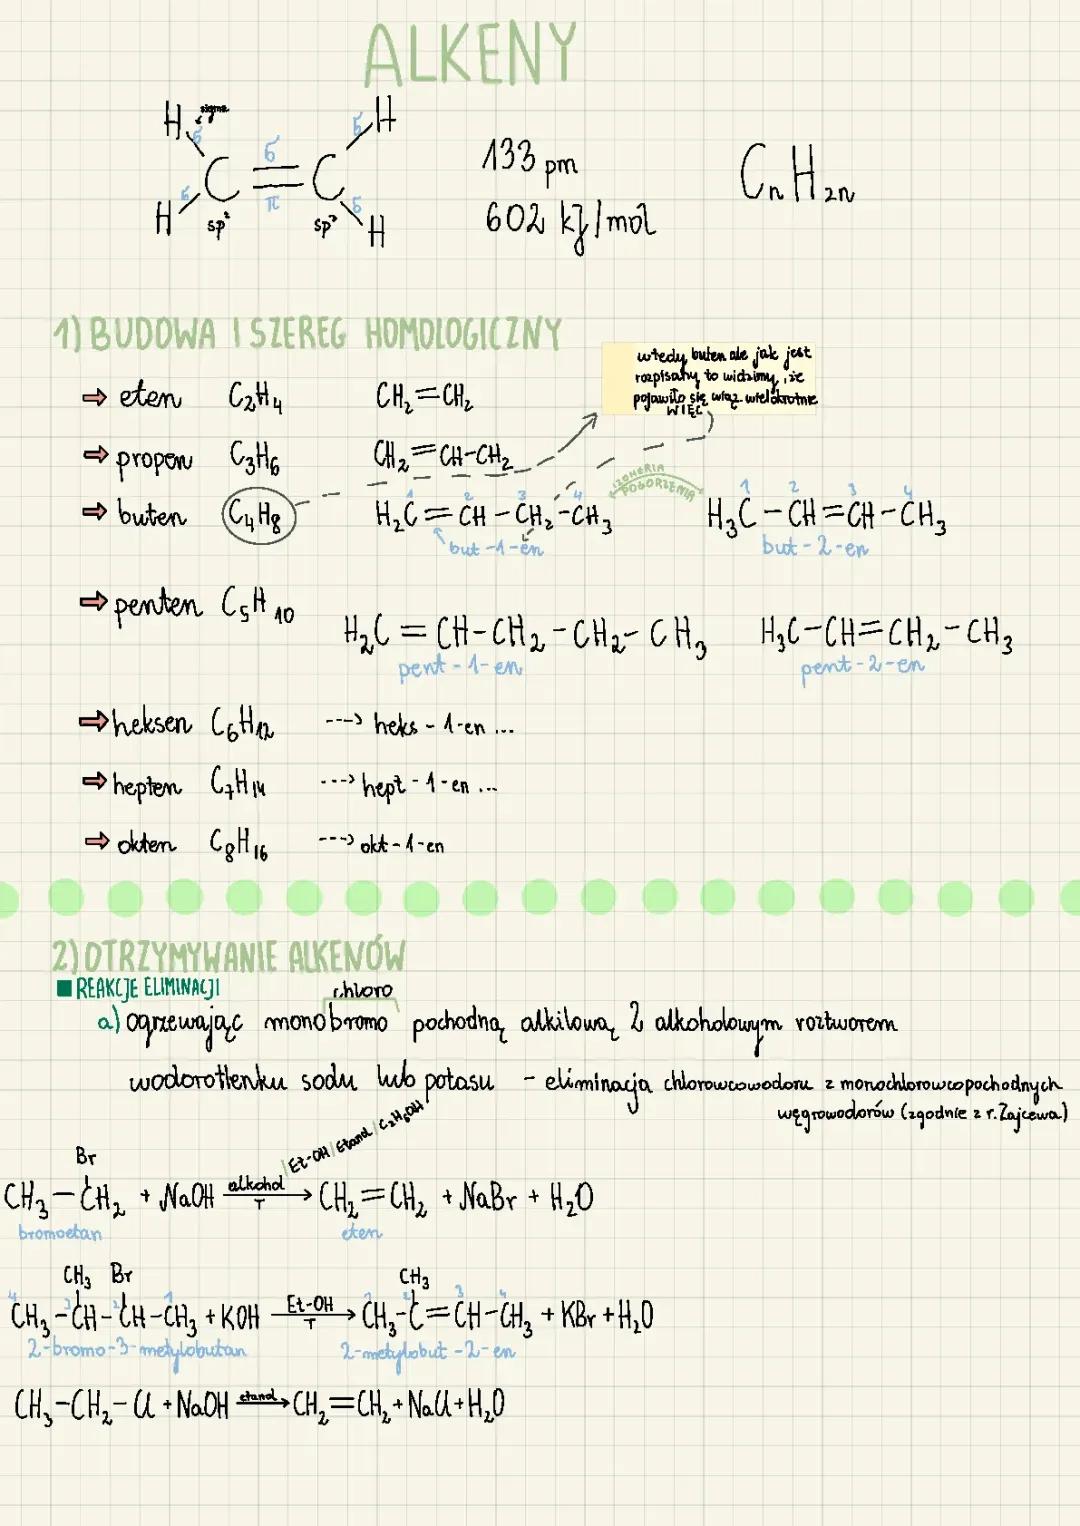 ALKENY
H sigma H
σ σ σ
C = C
σ π σ
H sp² sp² H
133 pm
602 kJ/mol
CnH2n
1) BUDOWA I SZEREG HOMOLOGICZNY
wtedy buten ale jak jest
rozpisany to widzimy, że
pojawiło się wiąz. wielokrotne
WIĘC
⇨ eten C₂H₄ CH₂=CH₂
⇨ propen C₃H₆ CH₂=CH-CH₂
IZOMERIA
POŁOŻENIA
1 2 3 4 1 2 3 4
⇨ buten C₄H₈ H₂C=CH-CH₂-CH₃ H₃C-CH=CH-CH₃
but-1-en but-2-en
⇨ penten C₅H₁₀
H₂C=CH-CH₂-CH₂-CH₃ H₃C-CH=CH₂-CH₃
pent-1-en pent-2-en
⇨ heksen C₆H₁₂ ---> heks-1-en ...
⇨ hepten C₇H₁₄ ---> hept-1-en ...
⇨ okten C₈H₁₆ ---> okt-1-en
2) OTRZYMYWANIE ALKENÓW
REAKCJE ELIMINACJI
chloro
a) ogrzewając monobromo pochodną alkilową z alkoholowym roztworem
wodorotlenku sodu lub potasu - eliminacja chlorowcowodoru z monochlorowcopochodnych
węglowodorów (zgodnie z r. Zajcewa)
Br
CH₃-CH₂ + NaOH alkohol / Et-OH / Etanol / C₂H₅OH T → CH₂=CH₂ + NaBr + H₂O
bromoetan eten
CH₃ Br CH₃
4 3 2 1 1 2 3 4
CH₃-CH-CH-CH₃ + KOH Et-OH T → CH₃-C=CH-CH₃ + KBr + H₂O
2-bromo-3-metylobutan 2-metylobut-2-en
CH₃-CH₂-Cl + NaOH etanol → CH₂=CH₂ + NaCl + H₂O